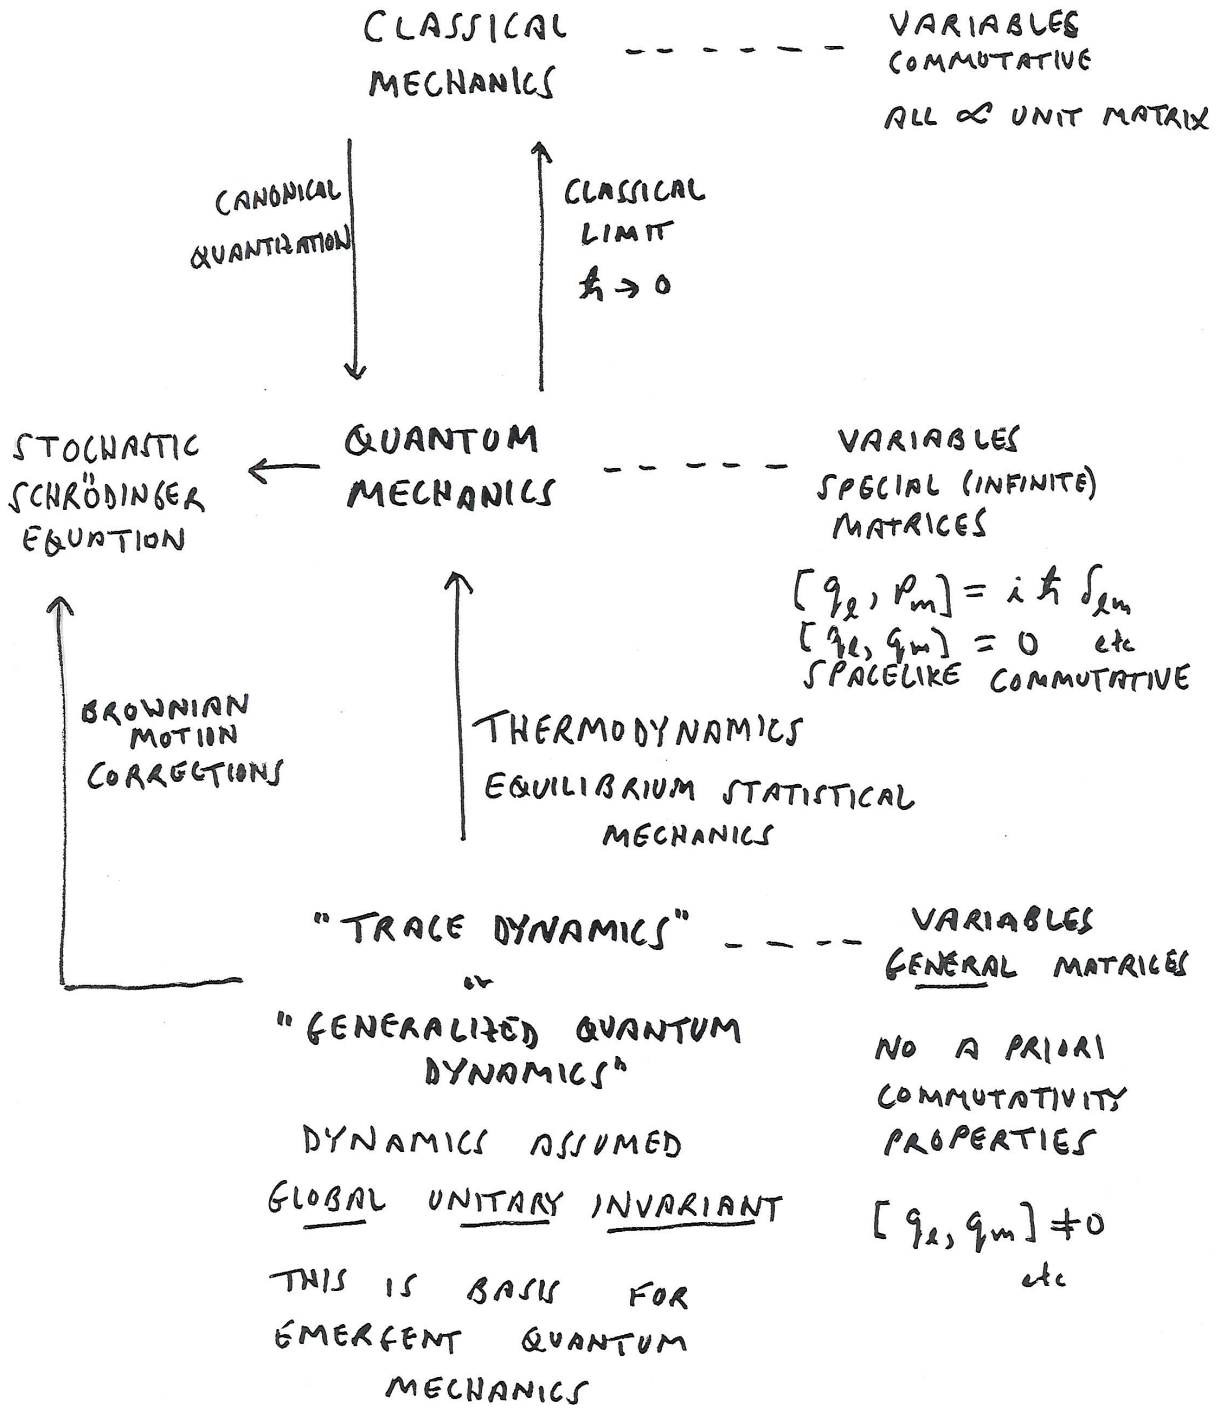 CLASSICAL
MECHANICS
VARIABLES
COMMUTATIVE
ALL ∝ UNIT MATRIX
CANONICAL
QUANTIZATION
CLASSICAL
LIMIT
ℏ → 0
STOCHASTIC
SCHRÖDINGER
EQUATION
QUANTUM
MECHANICS
VARIABLES
SPECIAL (INFINITE)
MATRICES
[q_ℓ, p_m] = i ℏ δ_ℓm
[q_ℓ, q_m] = 0 etc
SPACELIKE COMMUTATIVE
BROWNIAN
MOTION
CORRECTIONS
THERMODYNAMICS
EQUILIBRIUM STATISTICAL
MECHANICS
"TRACE DYNAMICS"
or
"GENERALIZED QUANTUM
DYNAMICS"
DYNAMICS ASSUMED
GLOBAL UNITARY INVARIANT
THIS IS BASIS FOR
EMERGENT QUANTUM
MECHANICS
VARIABLES
GENERAL MATRICES
NO A PRIORI
COMMUTATIVITY
PROPERTIES
[q_ℓ, q_m] ≠ 0
etc